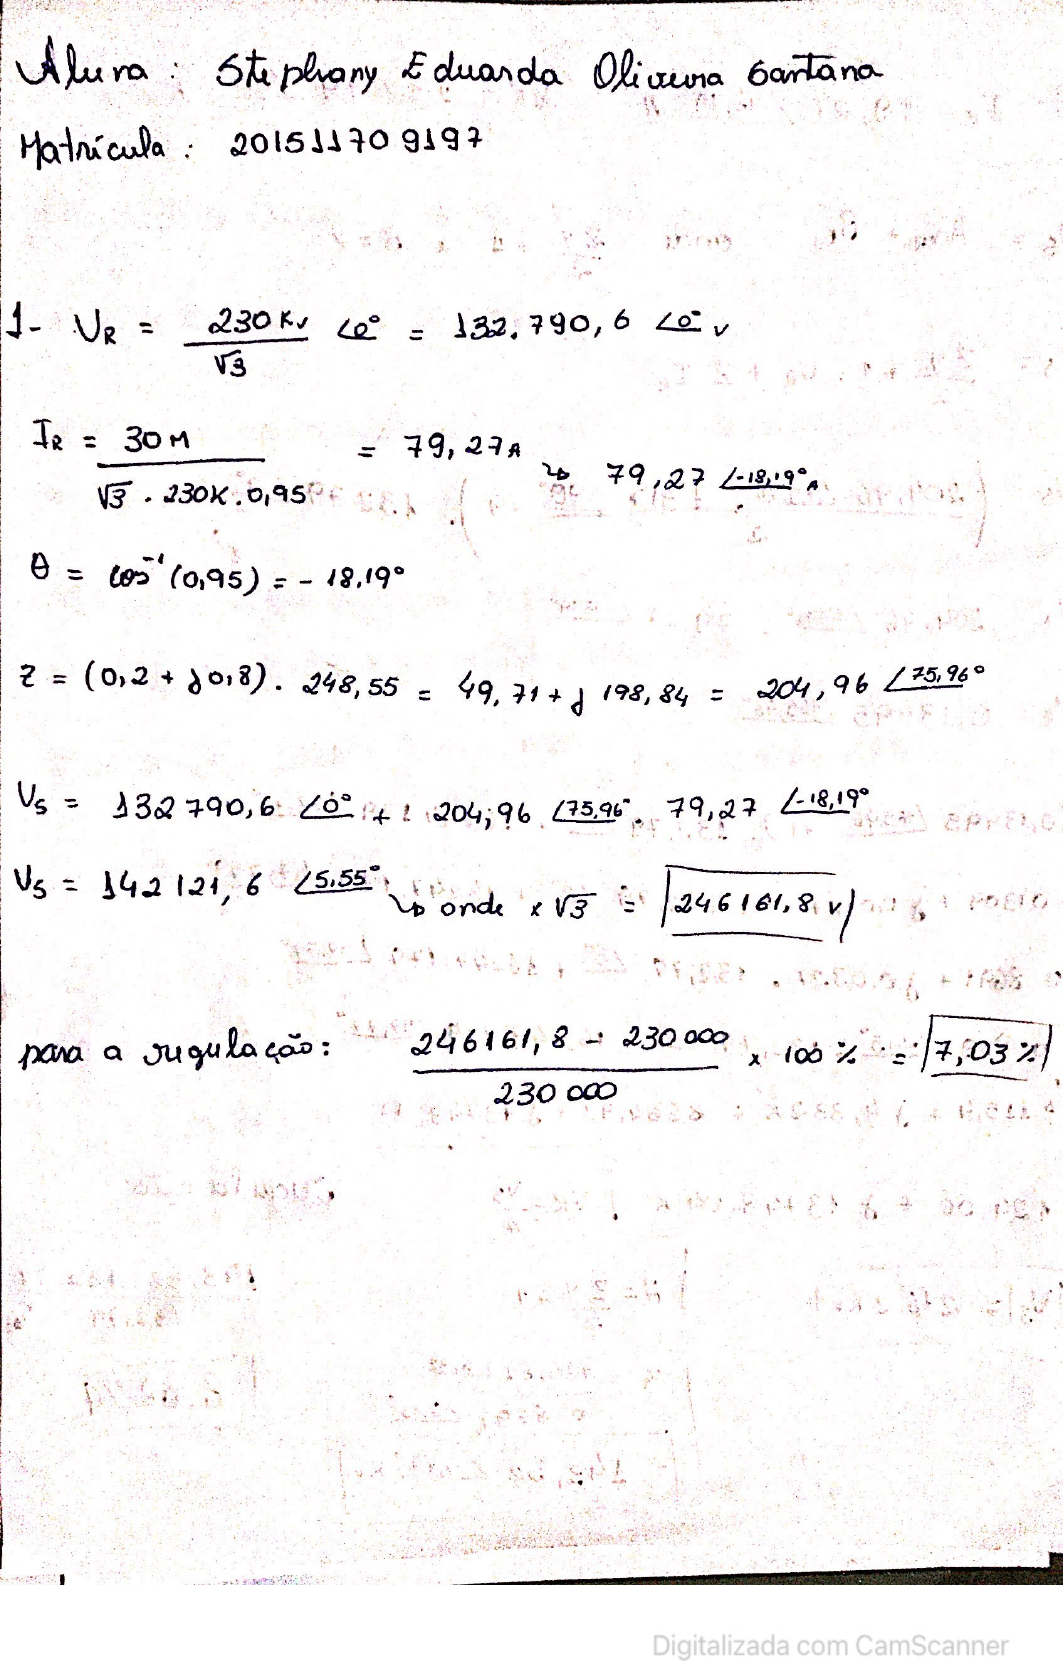 Aluna: Stephany Eduarda Oliveira Santana
Matrícula: 201511709197
1- VR = 230 Kv / √3 ∠0° = 132.790,6 ∠0° v
IR = 30 M / √3 . 230K . 0,95 = 79,27 A ↳ 79,27 ∠-18,19° A
θ = cos⁻¹ (0,95) = - 18,19°
Z = (0,2 + j0,8) . 248,55 = 49,71 + j 198,84 = 204,96 ∠75,96°
Vs = 132 790,6 ∠0° + 204,96 ∠75,96° . 79,27 ∠-18,19°
Vs = 142 121,6 ∠5,55° ↳ onde x √3 = 246161,8 v
para a regulação: 246161,8 - 230 000 / 230 000 x 100 % = 7,03 %
Digitalizada com CamScanner